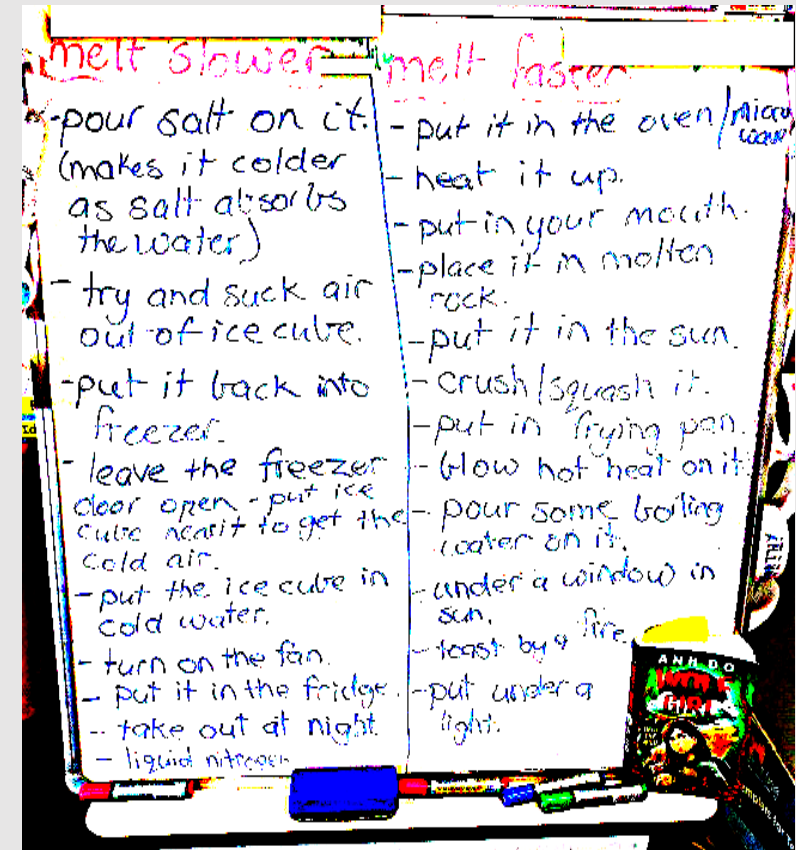 melt slower
-pour salt on it.
(makes it colder
as salt absorbs
the water)
- try and suck air
out of ice cube.
-put it back into
freezer.
- leave the freezer
door open - put ice
cube near it to get the
cold air.
- put the ice cube in
cold water.
- turn on the fan.
- put it in the fridge.
- take out at night
- liquid nitrogen
melt faster
- put it in the oven/micro
wave
- heat it up.
- put in your mouth.
- place it in molten
rock.
- put it in the sun.
- crush/squash it.
- put in frying pan.
- blow hot heat on it
- pour some boiling
water on it.
- under a window in
sun.
- toast by a fire.
- put under a
light.
ANH DO
GIRL